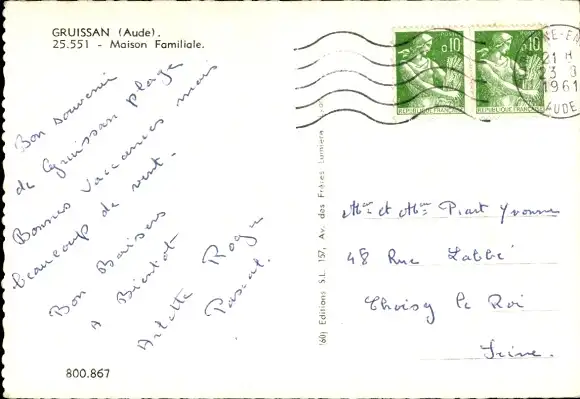 GRUISSAN (Aude).
25.551 - Maison Familiale.
Bon souvenir
de Gruissan plage
Bonnes Vaccances mais
beaucoup de vent.
Bon Baisers
A Bientôt
Arlette Roger
Pascal.
800.867
160) Editions S.L. 157, Av. des Frères Lumière
POSTES 0,10
REPUBLIQUE FRANÇAISE
0,10
REPUBLIQUE FRANÇAISE
NE-EN
21 H
23
1961
AUDE
Mr et Mme Piart Yvonne
48 Rue Labbé
Choisy le Roi
Seine.